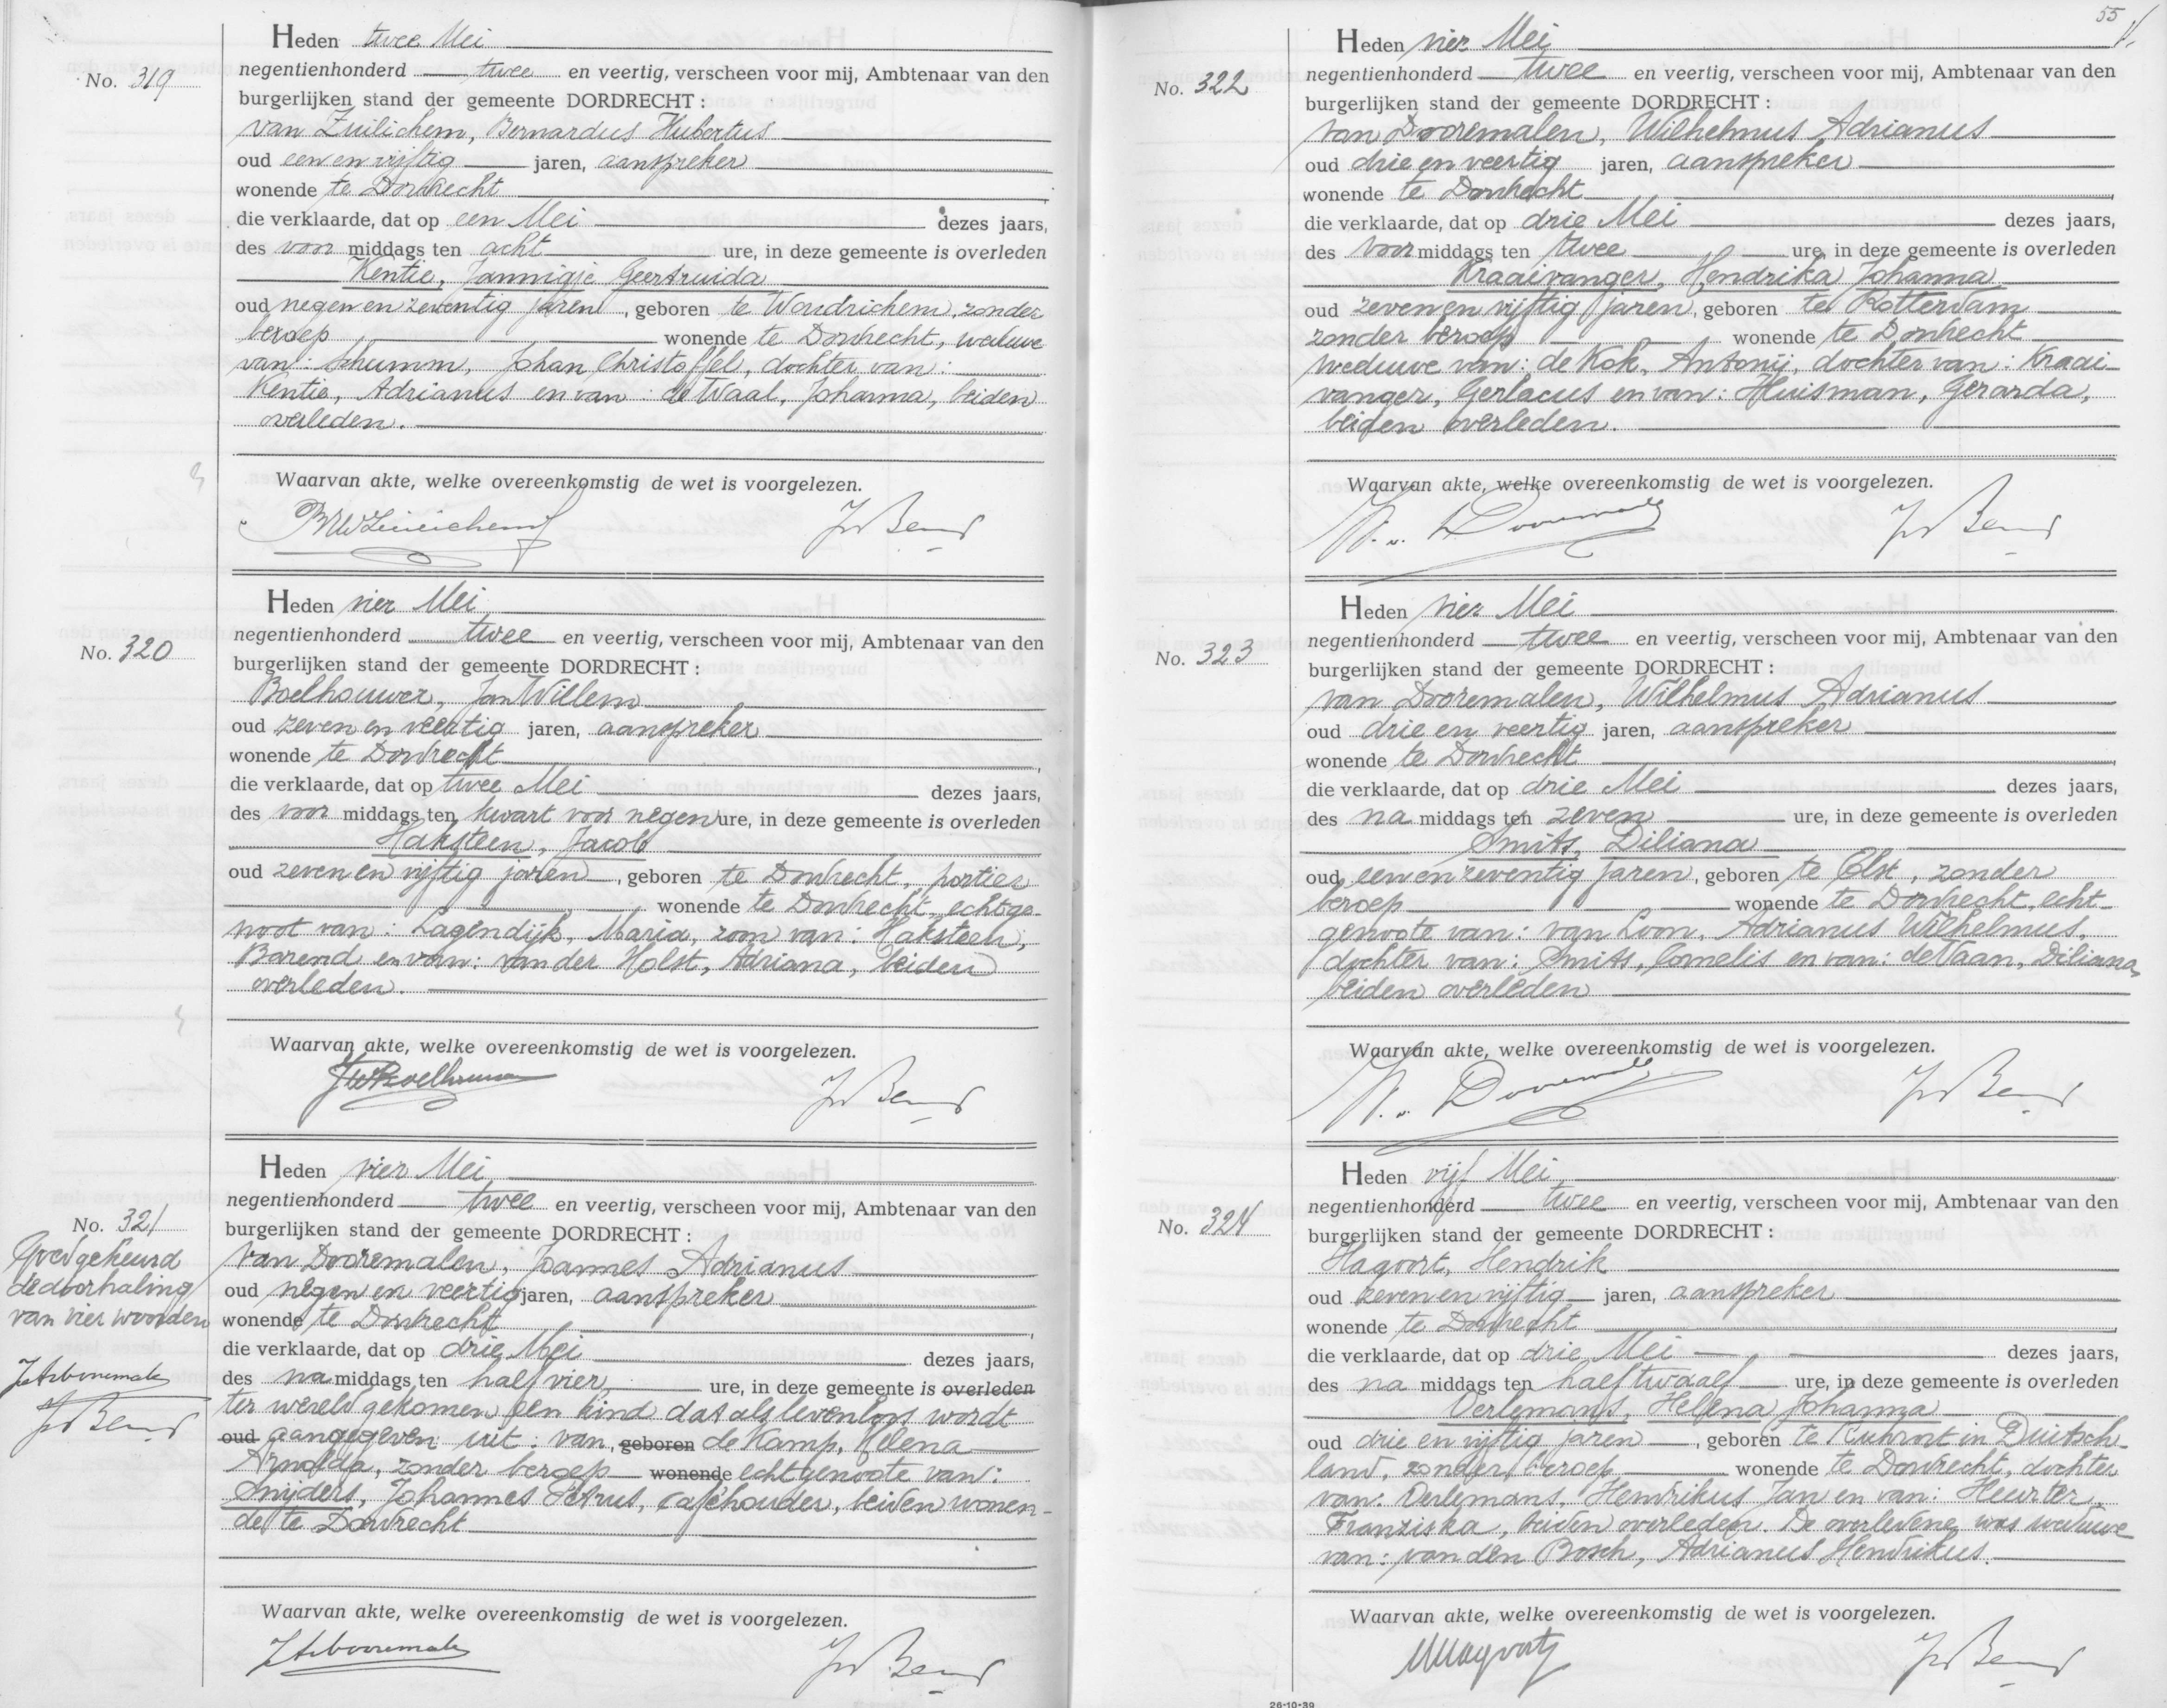 Heden twee Mei
No. 319
negentienhonderd twee en veertig, verscheen voor mij, Ambtenaar van den
burgerlijken stand der gemeente DORDRECHT :
van Zuilichem, Bernardus Hubertus
oud een en vijftig jaren, aanspreker
wonende te Dordrecht
die verklaarde, dat op een Mei dezes jaars,
des voor middags ten acht ure, in deze gemeente is overleden
Kentie, Jannigje Geertruida
oud negen en zeventig jaren, geboren te Woudrichem, zonder
beroep wonende te Dordrecht, weduwe
van: Schumm, Johan Christoffel, dochter van:
Kentie, Adrianus en van: de Waal, Johanna, beiden
overleden.
Waarvan akte, welke overeenkomstig de wet is voorgelezen.
Heden vier Mei
No. 320
negentienhonderd twee en veertig, verscheen voor mij, Ambtenaar van den
burgerlijken stand der gemeente DORDRECHT :
Boelhouwer, Jan Willem
oud zeven en veertig jaren, aanspreker
wonende te Dordrecht
die verklaarde, dat op twee Mei dezes jaars,
des voor middags ten kwart voor negen ure, in deze gemeente is overleden
Haksteen, Jacob
oud zeven en vijftig jaren, geboren te Dordrecht, portier
wonende te Dordrecht, echtge-
noot van: Lagendijk, Maria, zoon van: Haksteen,
Barend en van: van der Holst, Adriana, beiden
overleden.
Waarvan akte, welke overeenkomstig de wet is voorgelezen.
JWBoelhouwer
Heden vier Mei
No. 321
negentienhonderd twee en veertig, verscheen voor mij, Ambtenaar van den
burgerlijken stand der gemeente DORDRECHT :
Goedgekeurd
de doorhaling
van vier woorden
van Dooremalen, Joannes Adrianus
oud negen en veertig jaren, aanspreker
wonende te Dordrecht
die verklaarde, dat op drie Mei dezes jaars,
des na middags ten half vier ure, in deze gemeente is overleden
ter wereld gekomen een kind dat als levenloos wordt
oud aangegeven uit: van geboren de Kamp, Helena
Arnolda, zonder beroep wonende echtgenoote van:
Snijders, Johannes Petrus, caféhouder, beiden wonen-
de te Dordrecht
Waarvan akte, welke overeenkomstig de wet is voorgelezen.
55
Heden vier Mei
No. 322
negentienhonderd twee en veertig, verscheen voor mij, Ambtenaar van den
burgerlijken stand der gemeente DORDRECHT :
van Dooremalen, Wilhelmus Adrianus
oud drie en veertig jaren, aanspreker
wonende te Dordrecht
die verklaarde, dat op drie Mei dezes jaars,
des voor middags ten twee ure, in deze gemeente is overleden
Kraaivanger, Hendrika Johanna
oud zeven en vijftig jaren, geboren te Rotterdam
zonder beroep wonende te Dordrecht
weduwe van: de Kok, Antonij, dochter van: Kraai-
vanger, Gerlacus en van: Huisman, Gerarda,
beiden overleden.
Waarvan akte, welke overeenkomstig de wet is voorgelezen.
Heden vier Mei
No. 323
negentienhonderd twee en veertig, verscheen voor mij, Ambtenaar van den
burgerlijken stand der gemeente DORDRECHT :
van Dooremalen, Wilhelmus Adrianus
oud drie en veertig jaren, aanspreker
wonende te Dordrecht
die verklaarde, dat op drie Mei dezes jaars,
des na middags ten zeven ure, in deze gemeente is overleden
Smits, Diliana
oud een en zeventig jaren, geboren te Elst, zonder
beroep wonende te Dordrecht, echt-
genoote van: van Loon, Adrianus Wilhelmus,
dochter van: Smits, Cornelis en van: de Vaan, Diliana,
beiden overleden
Waarvan akte, welke overeenkomstig de wet is voorgelezen.
Heden vijf Mei
No. 324
negentienhonderd twee en veertig, verscheen voor mij, Ambtenaar van den
burgerlijken stand der gemeente DORDRECHT :
Hagoort, Hendrik
oud zeven en vijftig jaren, aanspreker
wonende te Dordrecht
die verklaarde, dat op drie Mei dezes jaars,
des na middags ten half twaalf ure, in deze gemeente is overleden
Oerlemans, Helena Johanna
oud drie en vijftig jaren, geboren te Ruhrort in Duitsch-
land, zonder beroep wonende te Dordrecht, dochter
van: Oerlemans, Hendrikus Jan en van: Heurter,
Franziska, beiden overleden. De overledene was weduwe
van: van den Bosch, Adrianus Hendrikus.
Waarvan akte, welke overeenkomstig de wet is voorgelezen.
26-10-39